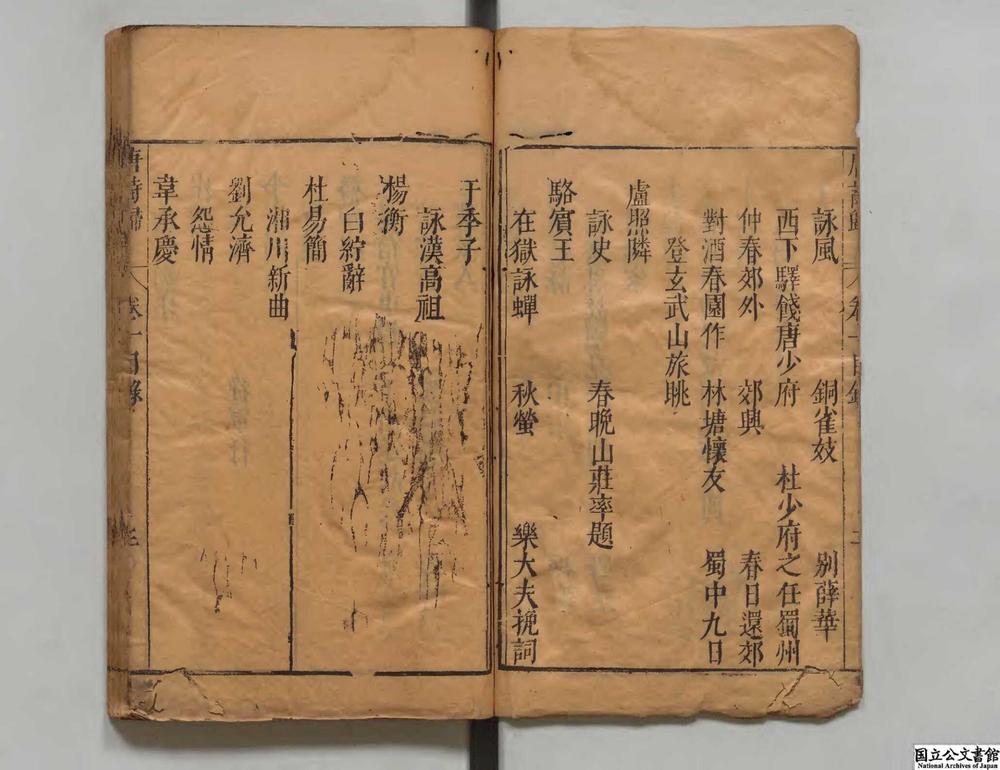 詠風　銅雀妓　别薛華
西下驛餞唐少府　杜少府之任蜀州
仲春郊外　郊興　春日還郊
對酒春園作　林塘懷友　蜀中九日
登玄武山旅眺
盧照隣
詠史　春晩山莊率題
駱賓王
在獄詠蟬　秋螢　樂大夫挽詞
于季子
詠漢高祖
楊衡
白紵辭
杜易簡
湘川新曲
劉允濟
怨情
韋承慶
唐詩歸　卷一目錄
国立公文書館
National Archives of Japan